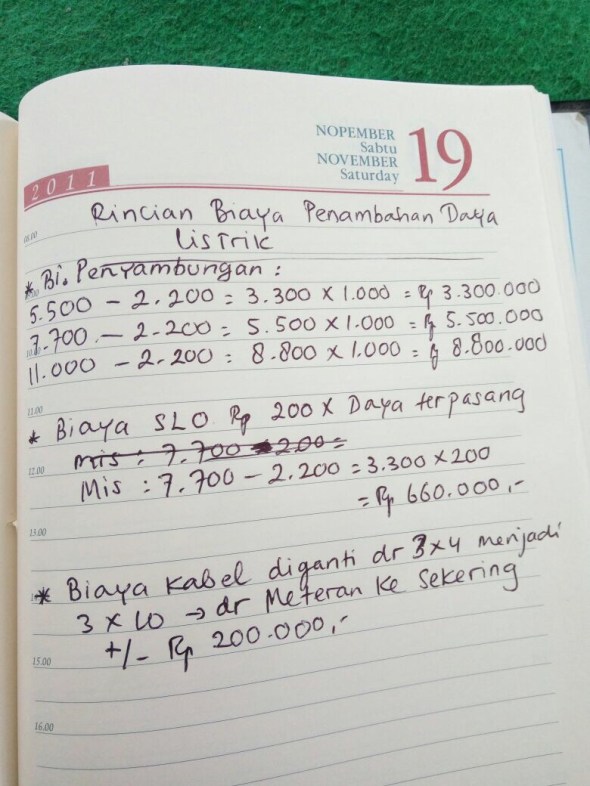 NOPEMBER
Sabtu
NOVEMBER
Saturday
19
2011
Rincian Biaya Penambahan Daya
Listrik
* Bi. Penyambungan :
5.500 - 2.200 = 3.300 x 1.000 = Rp 3.300.000
7.700 - 2.200 = 5.500 x 1.000 = Rp 5.500.000
11.000 - 2.200 = 8.800 x 1.000 = Rp 8.800.000
11.00
* Biaya SLO Rp 200 x Daya terpasang
mis : 7.700 200 =
12.00
Mis : 7.700 - 2.200 = 3.300 x 200
= Rp 660.000,-
13.00
* Biaya Kabel diganti dr 3x4 menjadi
3 x 10 → dr Meteran Ke Sekering
+/- Rp 200.000,-
15.00
16.00